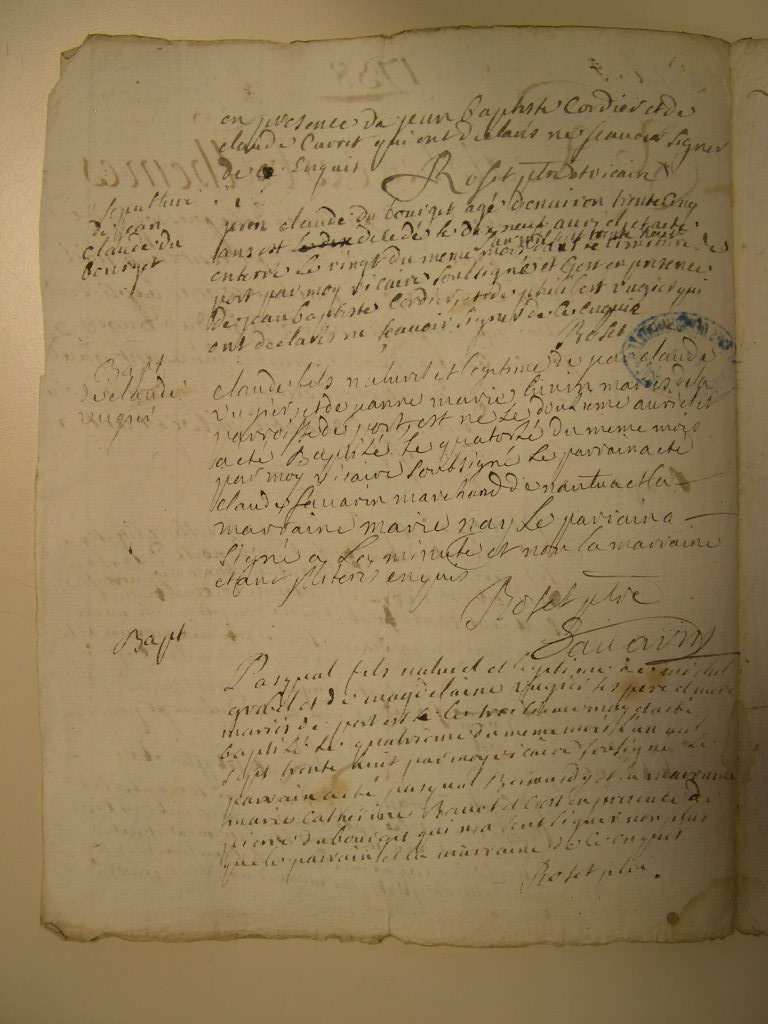 1738
en presence de jean baptiste Cordier et de
claude Curtet qui ont declarés ne scavoir signer
de ce Enquis
Roset ptre et vicaire
Sepulture
de jean
claude du
bouiget
jean claude du bouiget agé d'environ trente cinq
ans est decedé le dix neuf avril et a eté
enterré le vingt du meme mois
port par moy vicaire soussigné et C'est en presence
de jean baptiste Cordier, et de vugier qui
ont declarés ne scavoir signer de ce enquis
Roset
Bapt
de claude
vugier
claude fils naturel et legitime de claude
vugier, et de jeanne marie mariés de la
parroisse de port, est né le douzieme avril et
a eté Baptisé le quatorze du meme mois
par moy vicaire soubsigné le parrain a eté
claude Sauarin marchand de nantua et la
marraine marie nay le parrain a
signé a La minute et non la marraine
etant illiteré enquis
Roset ptre
Sauarin
Bapt
Pasqual fils naturel et legitime de michel
et de magdelaine vugier ses pere et mere
mariés de port est né le troisieme may et a eté
baptisé le quatrieme du meme mois l'an mil
sept trente huit par moy vicaire soussigné le
parrain a eté pasqual et la marraine
marie Catherine et C'est en presence de
pierre dubouiget qui n'a sceu signer non plus
que le parrain et la marraine de ce enquis
Roset ptre.